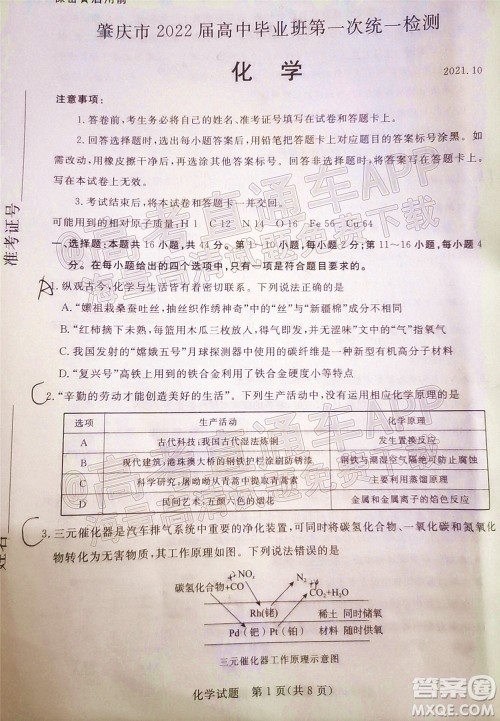 肇庆市 2022 届高中毕业班第一次统一检测
化 学
2021.10
注意事项:
1. 答卷前,考生务必将自己的姓名、准考证号填写在试卷和答题卡上。
2. 回答选择题时,选出每小题答案后,用铅笔把答题卡上对应题目的答案标号涂黑。如
需改动,用橡皮擦干净后,再选涂其他答案标号。回答非选择题时,将答案写在答题卡上。
写在本试卷上无效。
3. 考试结束后,将本试卷和答题卡一并交回。
可能用到的相对原子质量: H 1 C 12 N 14 O 16 Fe 56 Cu 64
一、选择题:本题共 16 小题,共 44 分。第 1~10 小题,每小题 2 分;第 11~16 小题,每小题 4
分。在每小题给出的四个选项中,只有一项是符合题目要求的。
1. 纵观古今,化学与生活有着密切联系。下列说法正确的是
A. “嫘祖栽桑蚕吐丝,抽丝织作绣神奇”中的“丝”与“新疆棉”成分相同
B. “红柿摘下未熟,每篮用木瓜三枚放入,得气即发,并无涩味”中的“气”指氧气
C. 我国自主研发的“嫦娥五号”月球探测器中使用的碳纤维为新型有机高分子材料
D. “复兴号”高铁车厢连接处使用的铁合金利用了铁合金强度大的特点
C
2. “辛勤的劳动才能创造美好的生活”。下列生产活动中,没有运用相应化学原理的是
选项 生产活动 化学原理
A 古代科技:我国古代湿法炼铜 发生置换反应
B 现代建筑:港珠澳大桥的钢铁护栏涂刷防锈漆 钢铁与潮湿空气隔绝可防腐蚀
C 科学研究:屠呦呦改进提取青蒿素 主要利用了蒸馏原理
D 民间艺术:五颜六色的烟花 金属和金属离子的焰色反应
C
3. 三元催化器是汽车排气系统中重要的净化装置,可同时将碳氢化合物、一氧化碳和氮氧化
物转化为无害物质,其工作原理如图。下列说法错误的是
NOₓ N₂
碳氢化合物+CO CO₂+H₂O
Rh(铑) 稀土 同时储氧
Pd(钯) Pt(铂) 材料 随时供氧
三元催化器工作原理示意图
化学试题 第 1 页(共 8 页)
准考证号
姓名
高考直通车APP
海量高清试题免费下载
答案圈
MXQE.COM